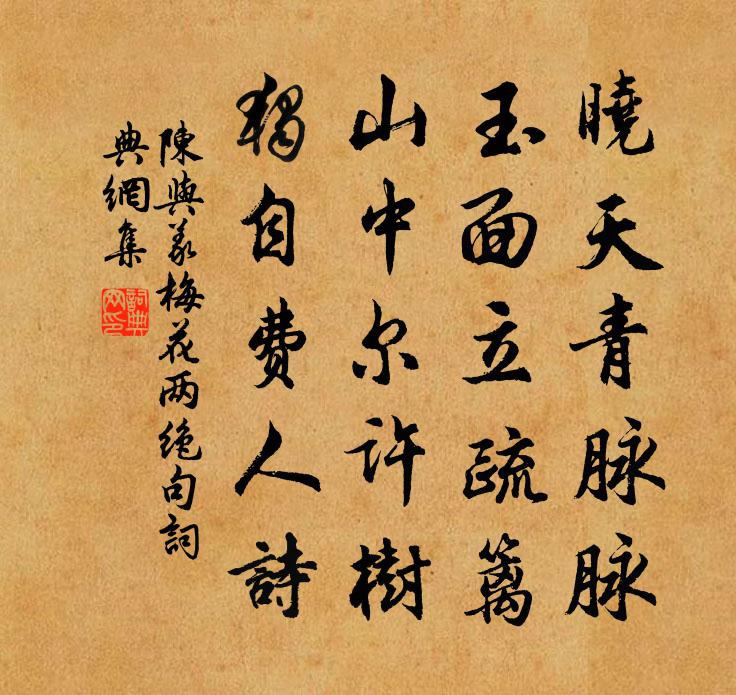 曉天青脉脉
玉面立疏籬
山中尔許樹
獨自費人詩
陳與義梅花两绝句詞
典網集
詞典
网印